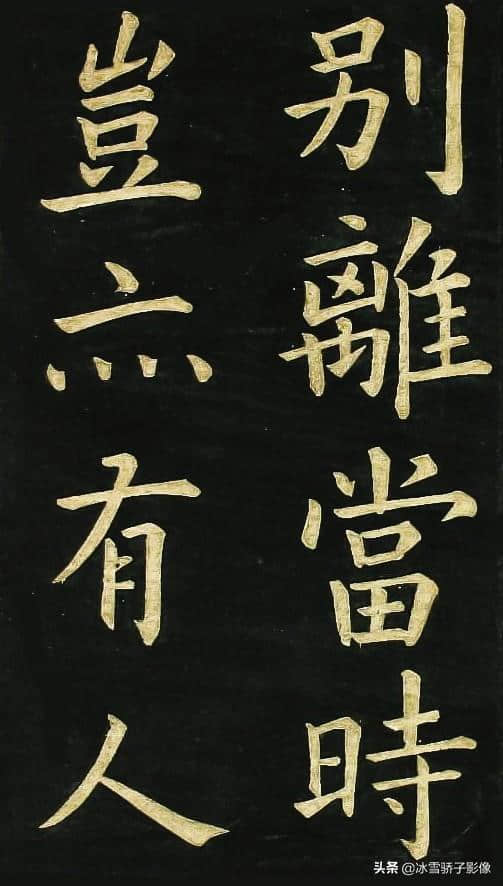 别離當時
豈亦有人
头条 @冰雪骄子影像